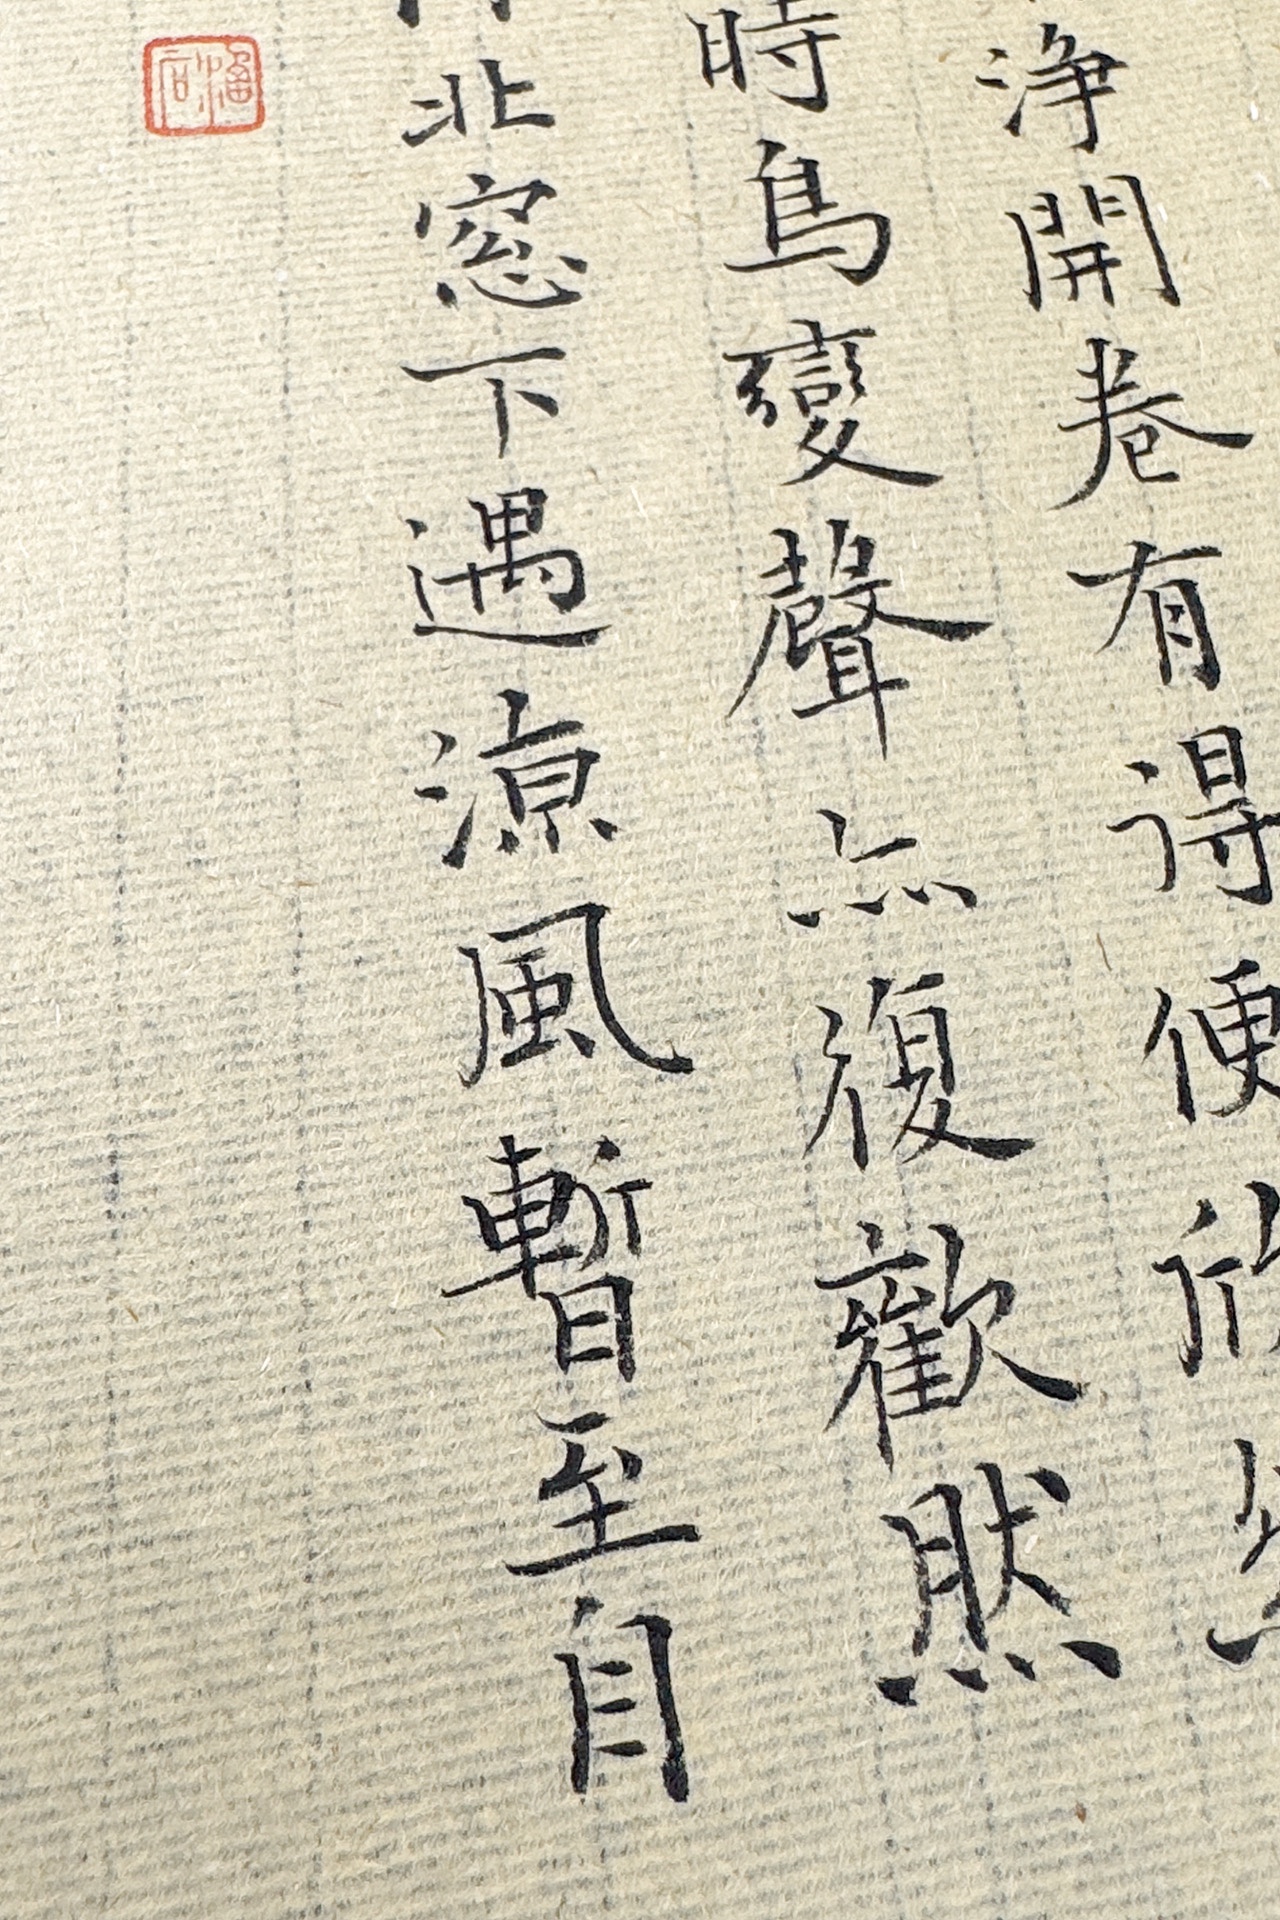 浄開卷有得便欣
時鳥變聲無復歡然
北窓下遇涼風暫至自